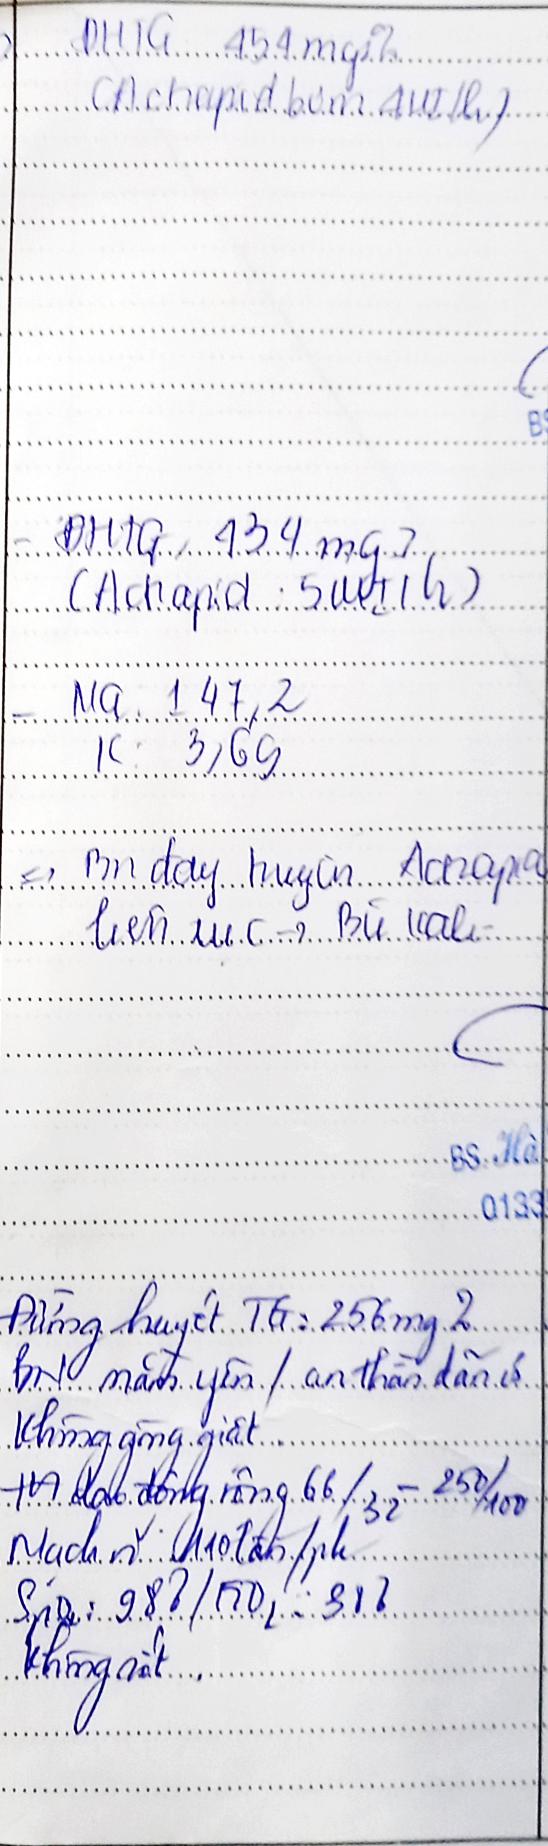 ĐHTG: 454 mg%
(Actrapid bơm 4UI/h)
BS
- ĐHTG: 434 mg%
(Actrapid: 5UI/h)
- Na: 147,2
K: 3,69
=> Bn đang truyền Actrapid
liên tục -> Bù kali
BS. Hà
0133
Đường huyết TG: 256mg%
BN nằm yên / an thần dãn cơ
Không gồng giật
HA dao động rộng 66/32 - 250/100
Mạch n: 110 lần/ph
SpO₂: 98% / FiO₂:
Không sốt.